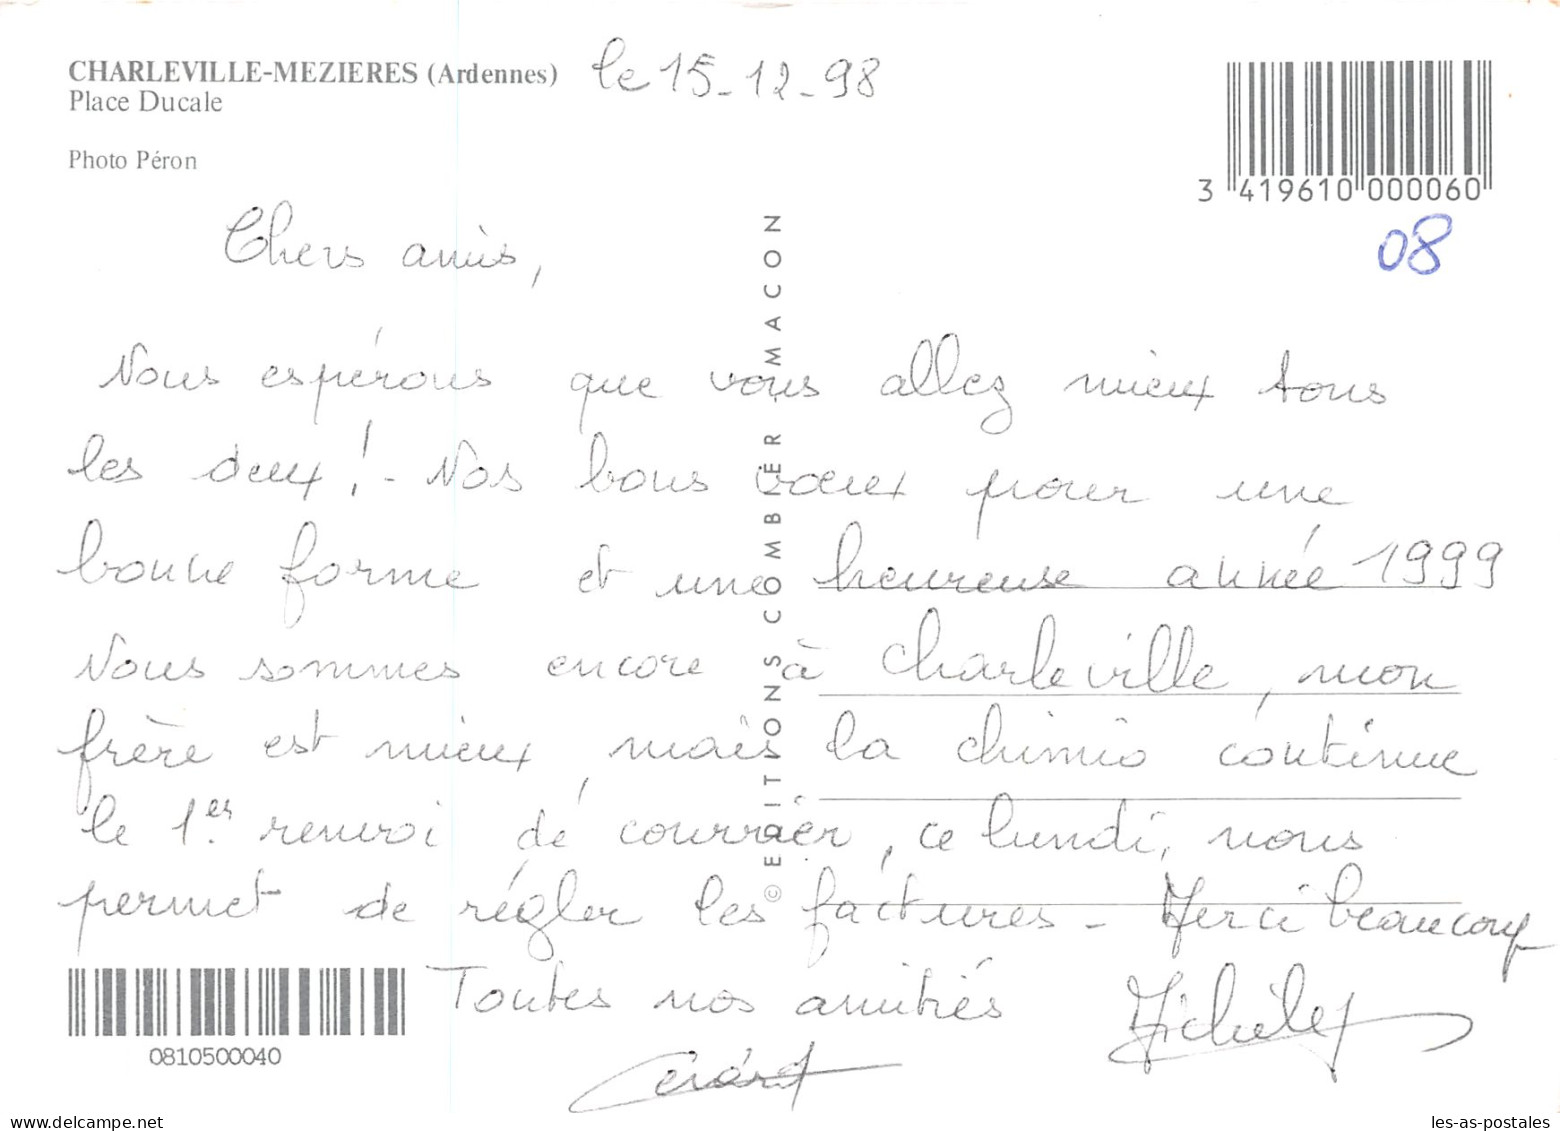 CHARLEVILLE-MEZIERES (Ardennes)
Place Ducale
Photo Péron
le 15-12-98
3 419610 000060
08
Chers amis,
Nous espérons que vous allez mieux tous
les deux! - Nos bons vœux pour une
bonne forme et une heureuse année 1999
Nous sommes encore à Charleville, mon
frère est mieux, mais la chimio continue
le 1er. renvoi de courrier, ce lundi, nous
permet de régler les factures - Merci beaucoup
Toutes nos amitiés
Gérard
Michèle
© EDITIONS COMBIER MACON
0810500040
https://www.delcampe.net
les-as-postales